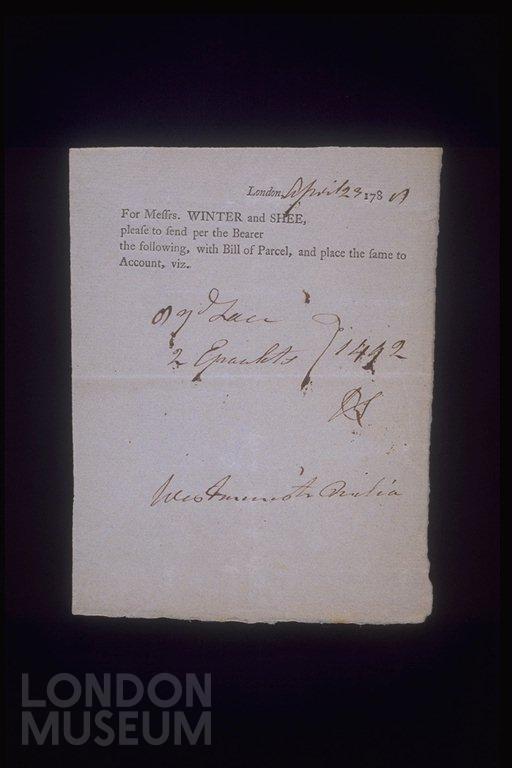 London, April 23 178
For Meſſrs. WINTER and SHEE,
pleaſe to ſend per the Bearer
the following, with Bill of Parcel, and place the ſame to
Account, viz.
yd Lace
2 Epaulets 1492
Westminster Militia
LONDON
MUSEUM